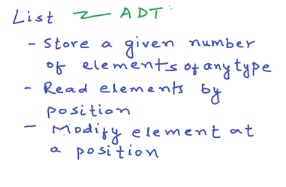 List ADT
- Store a given number
of elements of any type
- Read elements by
position
- Modify element at
a position